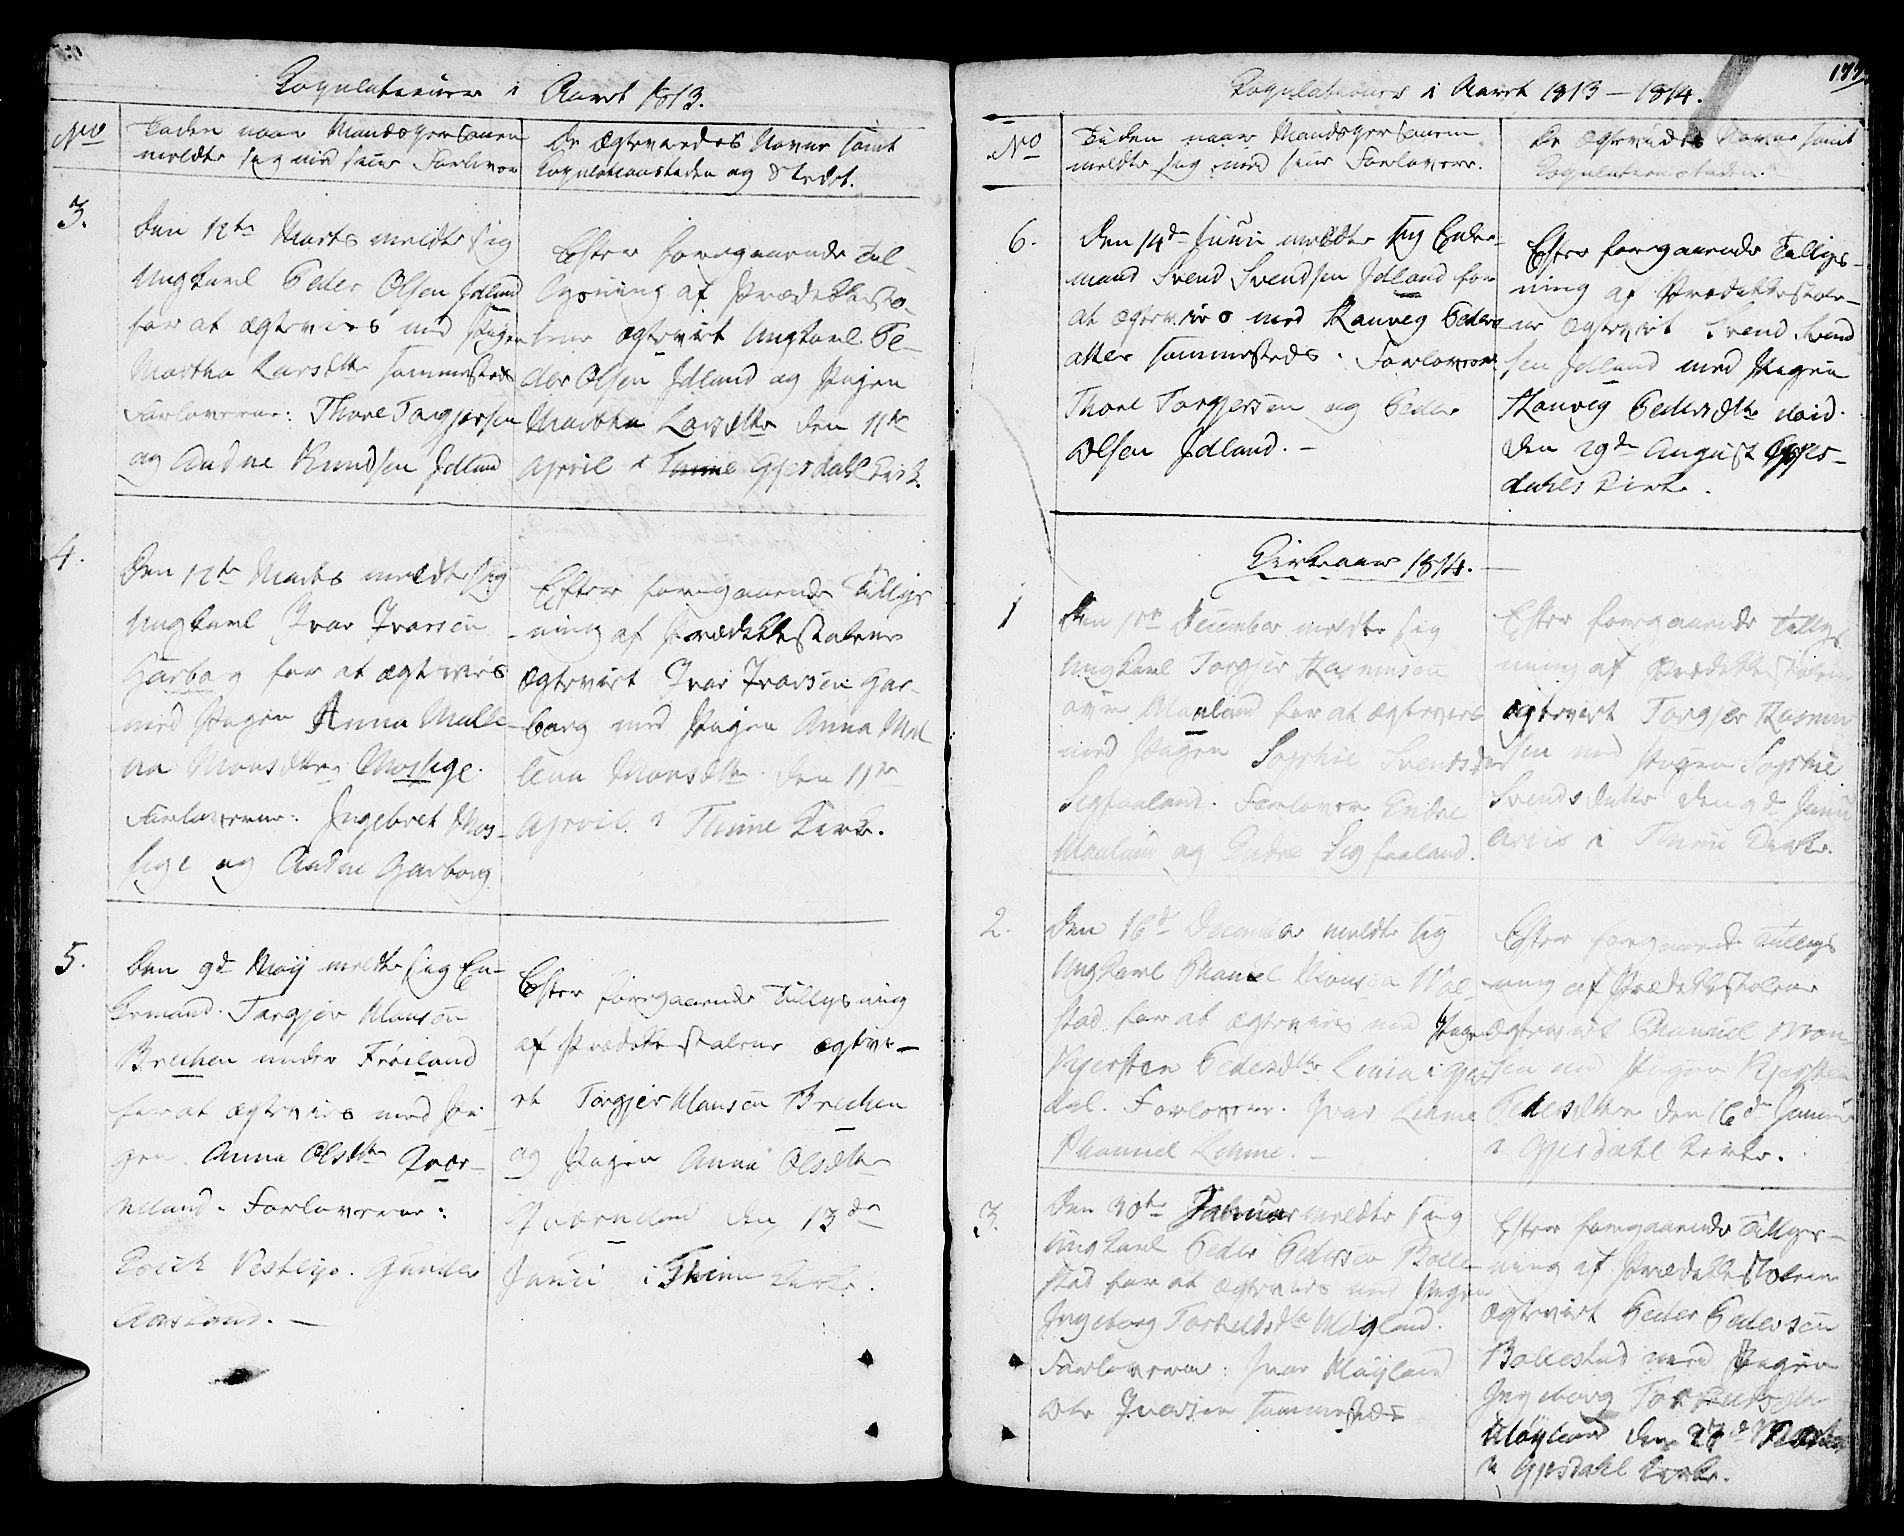 Copulationer i Aaret 1813.
No
Tiden naar Mandspersonen
meldte sig med siine Forlover
De Ægteviedes Navne samt
Copulationstiden og Stedet.
3.
Den 12te Marts meldte sig
Ungkarl Peder Olsen Idland
for at ægtevies med Pigen
Martha Larsdtr sammesteds
Forloverne: Thore Torgjersen
og Andne Knudsen Idland
Efter foregaaende Til-
lysning af Prædikesto-
lene ægteviet Ungkarl Pe-
der Olsen Idland og Pigen
Martha Larsdtr den 11te
April i Gjesdahl Kirk.
4.
Den 12te Marts meldte sig
Ungkarl Ivar Ivarsen
Garborg for at ægtevies
med Pigen Anna Malle-
na Monsdtr Mossige.
Forloverne: Ingebret Mos-
sige og Andne Garborg.
Efter foregaaende Tillys-
ning af Prædikestolene
ægteviet Ivar Ivarsen Gar-
borg med Pigen Anna Mal
lena Monsdtr den 11te
April i Thime Kirke.
5.
Den 9de Maij meldte sig En-
kemand Torgjer Monsen
Brekken under Frøiland
for at ægtevies med Pi-
gen Anna Olsdtr Qvær-
neland. Forloverne:
Erich Vestlye. Gunder
Aarsland. —
Efter foregaaende Tillysning
af Prædikestolene ægtevi-
et Torgjer Monsen Brekken
og Pigen Anna Olsdtr
Qværneland den 13de
Junii i Thime Kirke.
177
Copulationer i Aaret 1813 – 1814.
No
Tiden naar Mandspersonen
meldte sig med siine Forlovere.
De Ægteviedes Navne samt
Copulationstiden.
6.
Den 14de Junii meldte sig Enke-
mand Svend Svendsen Idland for
at ægtevies med Ranveg Peders
datter sammesteds. Forloverne
Thore Torgjersen og Peder
Olsen Idland. —
Efter foregaaende Tillys-
ning af Prædikestole-
ne ægteviet Svend Svend
sen Idland med Pigen
Ranveg Pedersdtr ibid.
den 29de August Gjes-
dahls Kirke.
Kirkeaar 1814. —
1
Den December meldte sig
Ungkarl Torgjer Rasmusen
øvre Maaland for at ægtevies
med Pigen Sophie Svendsdtr
Segfaaland. Forlovere Endre
Maaland og Endre Segfaaland.
Efter foregaaende Tillys
ning af Prædikestolene
ægteviet Torgjer Rasmu
sen med Pigen Sophie
Svendsdatter den 9de Janu
arii i Thime Kirke.
2.
Den 16de December meldte sig
Ungkarl
stad for at ægtevies med Pigen
Kjersten Pedersdtr Limen i Gjes
dal. Forlovere. Ivar Limme
Efter foregaaende Tillys
ning af Prædikestolene
ægteviet
sen med Pigen Kjersten
Pedersdtr den 16de Januar
i Gjesdahl Kirke.
3.
Den 30te Januar meldte sig
Ungkarl Peder Pedersen Bolle-
stad for at ægtevies med Pigen
Ingeborg Torkildsdtr Møgland.
Forloverne: Ivar Møyland
Ole Iversen sammesteds
Efter foregaaende Tillys-
ning af Prædikestolene
ægteviet Peder Pedersen
Bollestad med Pigen
Ingeborg Torkildsdtr
Møyland den 27de Marts
i Gjesdahl Kirke.